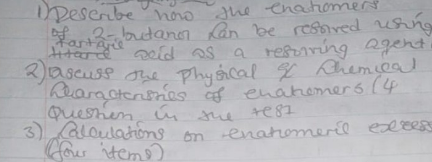 1) Describe how the enanomers
of 2-butanol can be resolved using
tartaric acid as a resolving agent.
2) Discuss the physical & chemical
Characteristics of enanomers (4
question in the test
3) Calculations on enanomeric excess
(four items)